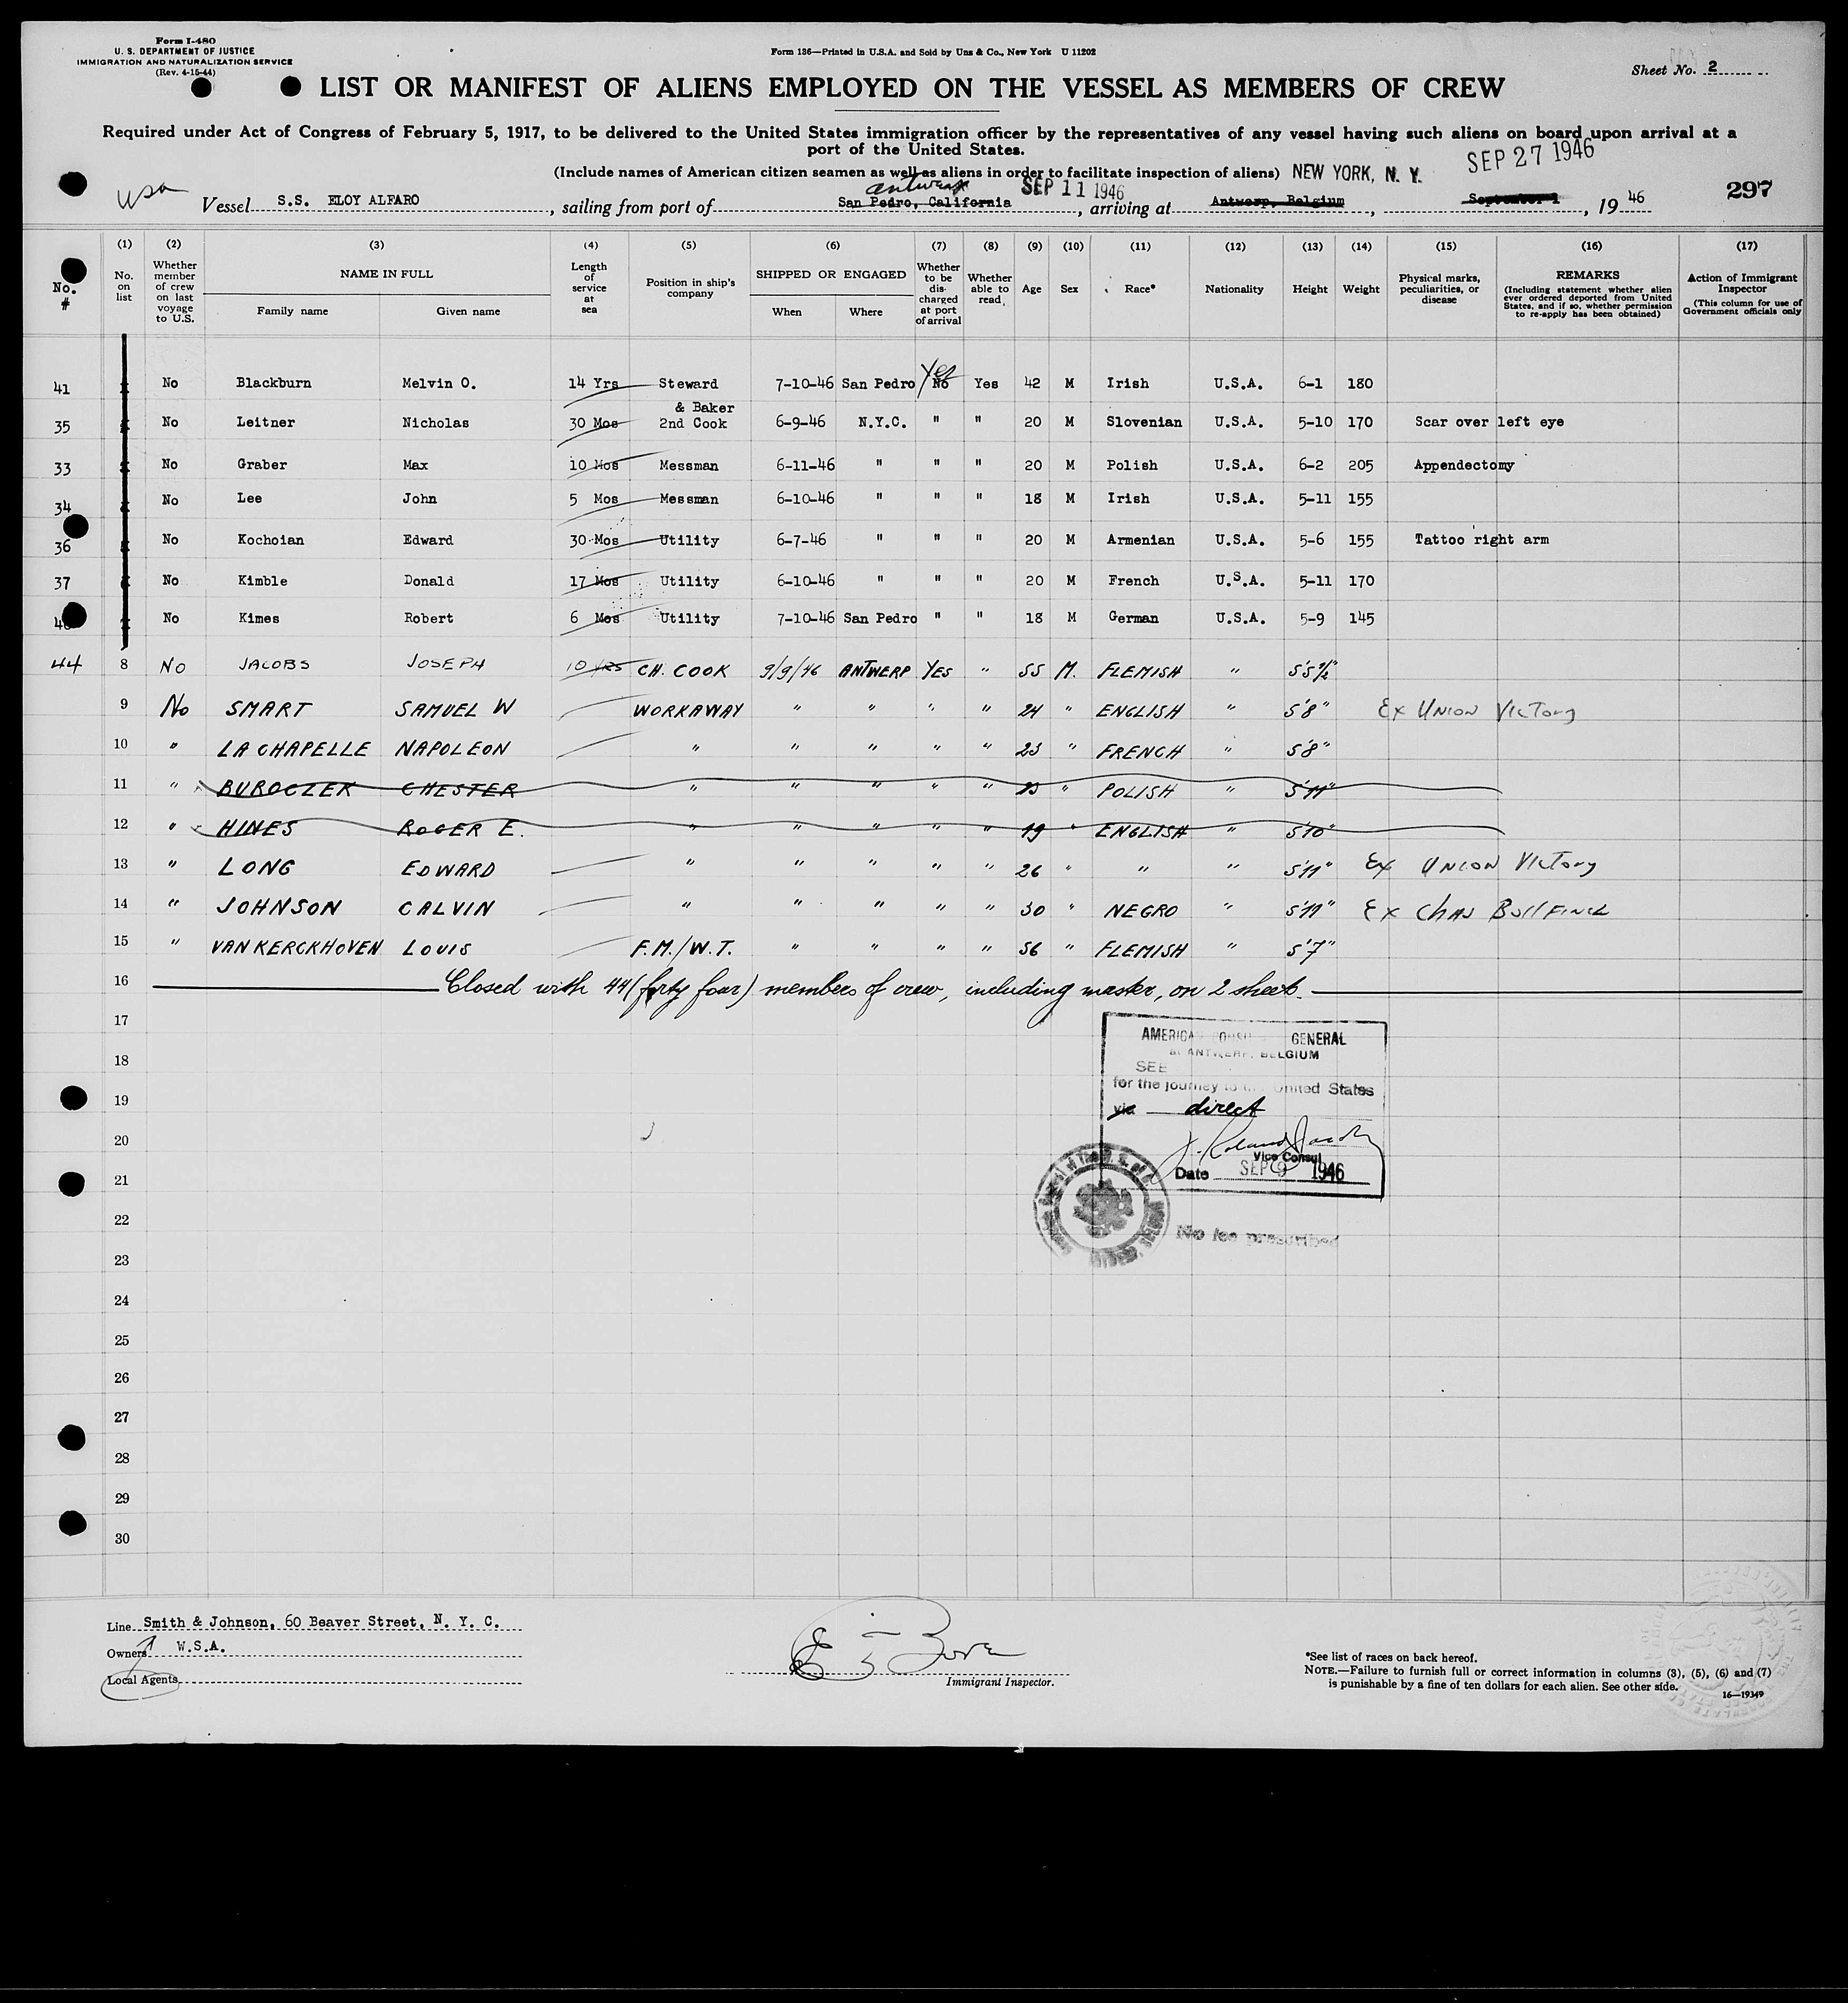 Form I-480
U. S. DEPARTMENT OF JUSTICE
IMMIGRATION AND NATURALIZATION SERVICE
(Rev. 4-15-44)
Form 136—Printed in U.S.A. and Sold by Unz & Co., New York U 11202
Sheet No. 2
LIST OR MANIFEST OF ALIENS EMPLOYED ON THE VESSEL AS MEMBERS OF CREW
Required under Act of Congress of February 5, 1917, to be delivered to the United States immigration officer by the representatives of any vessel having such aliens on board upon arrival at a
port of the United States.
(Include names of American citizen seamen as well as aliens in order to facilitate inspection of aliens) NEW YORK, N. Y. SEP 27 1946
Antwerp SEP 11 1946
Vessel S.S. ELOY ALFARO, sailing from port of San Pedro, California, arriving at Antwerp, Belgium, September 1, 19 46
297
No. #
(1) No. on list
(2) Whether member of crew on last voyage to U.S.
(3) NAME IN FULL Family name Given name
(4) Length of service at sea
(5) Position in ship's company
(6) SHIPPED OR ENGAGED When Where
(7) Whether to be discharged at port of arrival
(8) Whether able to read
(9) Age
(10) Sex
(11) Race*
(12) Nationality
(13) Height
(14) Weight
(15) Physical marks, peculiarities, or disease
(16) REMARKS (Including statement whether alien ever ordered deported from United States, and if so, whether permission to re-apply has been obtained)
(17) Action of Immigrant Inspector (This column for use of Government officials only
41 No Blackburn Melvin O. 14 Yrs Steward 7-10-46 San Pedro No Yes Yes 42 M Irish U.S.A. 6-1 180
35 No Leitner Nicholas 30 Mos & Baker 2nd Cook 6-9-46 N.Y.C. " " 20 M Slovenian U.S.A. 5-10 170 Scar over left eye
33 No Graber Max 10 Mos Messman 6-11-46 " " " 20 M Polish U.S.A. 6-2 205 Appendectomy
34 No Lee John 5 Mos Messman 6-10-46 " " " 18 M Irish U.S.A. 5-11 155
36 No Kochoian Edward 30 Mos Utility 6-7-46 " " " 20 M Armenian U.S.A. 5-6 155 Tattoo right arm
37 No Kimble Donald 17 Mos Utility 6-10-46 " " " 20 M French U.S.A. 5-11 170
No Kimes Robert 6 Mos Utility 7-10-46 San Pedro " " 18 M German U.S.A. 5-9 145
44 8 NO JACOBS JOSEPH 10 YRS CH. COOK 9/9/46 ANTWERP YES " 55 M. FLEMISH " 5'5½"
9 No SMART SAMUEL W WORKAWAY " " " " 24 " ENGLISH " 5'8" Ex UNION VICTORY
10 " LA CHAPELLE NAPOLEON " " " " " 23 " FRENCH " 5'8"
11 " BUROCZEK CHESTER " " " " " " POLISH " 5'11"
12 " HINES ROGER E. " " " " " 19 " ENGLISH " 5'10"
13 " LONG EDWARD " " " " " 26 " " " 5'11" Ex UNION VICTORY
14 " JOHNSON CALVIN " " " " " 30 " NEGRO " 5'11" Ex CHAS BULLFINCH
15 " VAN KERCKHOVEN LOUIS F.M./W.T. " " " " 56 " FLEMISH " 5'7"
16 Closed with 44 (forty four) members of crew, including master, on 2 sheets.
17
18
19
20
21
22
23
24
25
26
27
28
29
30
GENERAL
ANTWERP, BELGIUM
SEE
for the journey to United States
via direct
Vice Consul
Date SEP 9 1946
No fee prescribed
Line Smith & Johnson, 60 Beaver Street, N. Y. C.
Owners W.S.A.
Local Agents
Immigrant Inspector.
*See list of races on back hereof.
NOTE.—Failure to furnish full or correct information in columns (3), (5), (6) and (7)
is punishable by a fine of ten dollars for each alien. See other side.
16—19349